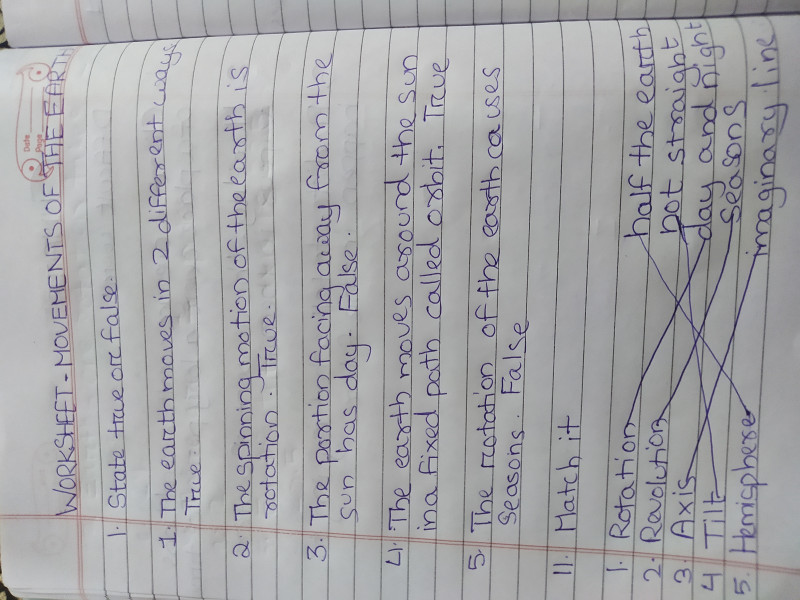 Date
Page
WORKSHEET - MOVEMENTS OF THE EARTH
1. State true or false.
1. The earth moves in 2 different ways
True.
2. The spinning motion of the earth is
rotation. True.
3. The portion facing away from the
sun has day. False.
4. The earth moves around the sun
in a fixed path called orbit. True
5. The rotation of the earth causes
seasons. False
11. Match it
1. Rotation half the earth
2. Revolution not straight
3. Axis day and night
4 Tilt seasons
5. Hemisphere imaginary line